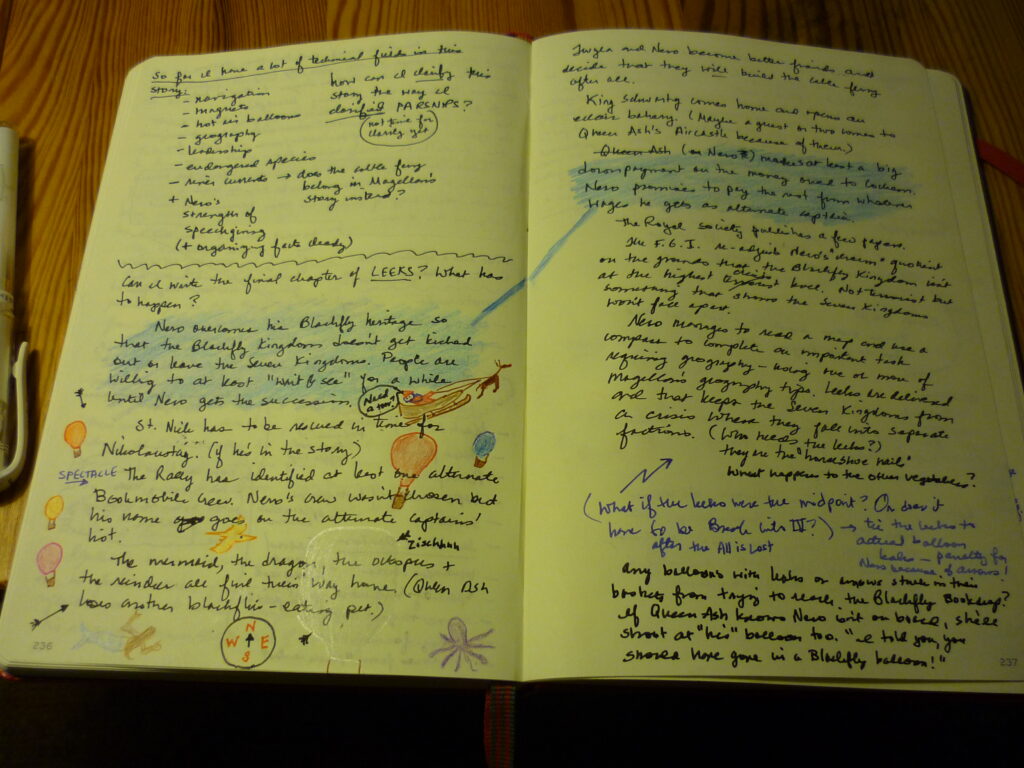 So far I have a lot of technical fields in this
story:
- navigation
- magnets
- hot air balloons
- geography
- leadership
- endangered species
- river currents → does the cable ferry
belong in Magellan's
story instead?
+ Nero's
strength of
speechgiving
(+ organizing facts clearly)
how can I clarify this
story the way I
clarified PARSNIPS?
not time for
clarity yet
Can I write the final chapter of LEEKS? What has
to happen?
Nero overcomes his Blackfly heritage so
that the Blackfly Kingdom doesn't get kicked
out or leave the Seven Kingdoms. People are
willing to at least "wait & see" for a while
until Nero gets the succession.
Need
a tow?
St. Nick has to be rescued in time for
Nikolaustag. (if he's in the story)
SPECTACLE The Rally has identified at least one alternate
Bookmobile Crew. Nero's crew wasn't chosen but
his name goes on the alternate captains'
list.
Zischhhh
The mermaid, the dragon, the octopus +
the reindeer all find their way home (Queen Ash
has another blackflies-eating pet.)
N
W E
S
236
and Nero become better friends and
decide that they will build the cable ferry
after all.
King comes home and opens an
eclair bakery. (Maybe a guest or two comes to
Queen Ash's Aircastle because of them.)
Queen Ash (or Nero?) makes at least a big
downpayment on the money owed to
Nero promises to pay the rest from whatever
wages he gets as alternate captain.
The Royal Society publishes a few papers.
The F.B.I. re-adjusts Nero's "harm" quotient
on the grounds that the Blackfly Kingdom isn't
at the highest level. Not terrorist but
something that shows the Seven Kingdoms
won't fall apart.
Nero manages to read a map and use a
compass to complete an important task
requiring geography – using one or more of
Magellan's geography tips. Leeks are delivered
and that keeps the Seven Kingdoms from
a crisis where they fall into separate
factions. (Who needs the leeks?)
they are the "horseshoe nails"
What happens to the other vegetables?
(What if the leeks were the midpoint? Or does it
have to be Break into IV?) → tie the leeks to
after the All is Lost
actual balloon
leaks – penalty for
Nero because of arrows!
Any balloons with leaks or arrows stuck in their
baskets from trying to reach the Blackfly Bookdrop?
If Queen Ash knows Nero isn't on board, she'll
shoot at "his" balloon too. "I told you, you
should have gone in a Blackfly balloon!"
237